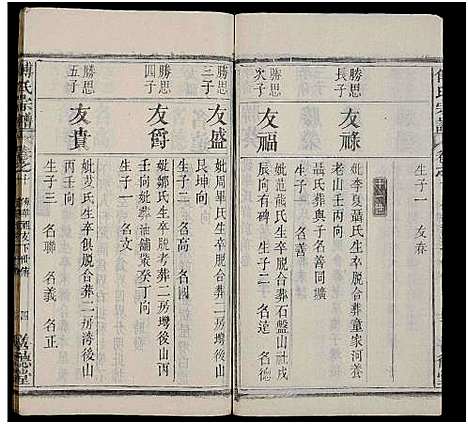 生子一
友春
勝思
長子
友祿
妣李夏聶氏生卒脫合葬童家河養
老山壬丙向
聶氏葬與子名善同壙
勝思
次子
友福
妣范熊氏生卒脫合葬石盤山戌
辰向有碑 生子二 名達 名德
勝思
三子
友盛
妣周畢氏生卒脫合葬二房塆後山
艮坤向
生子二 名高 名國
勝思
四子
友爵
妣鄒氏生卒脫考葬二房塆後山丙
壬向妣葬油鋪榮癸丁向
生子一 名文
勝思
五子
友貴
妣艾氏生卒俱脫合葬二房湾後山
丙壬向
生子三 名聯 名義 名正
傅氏宗譜